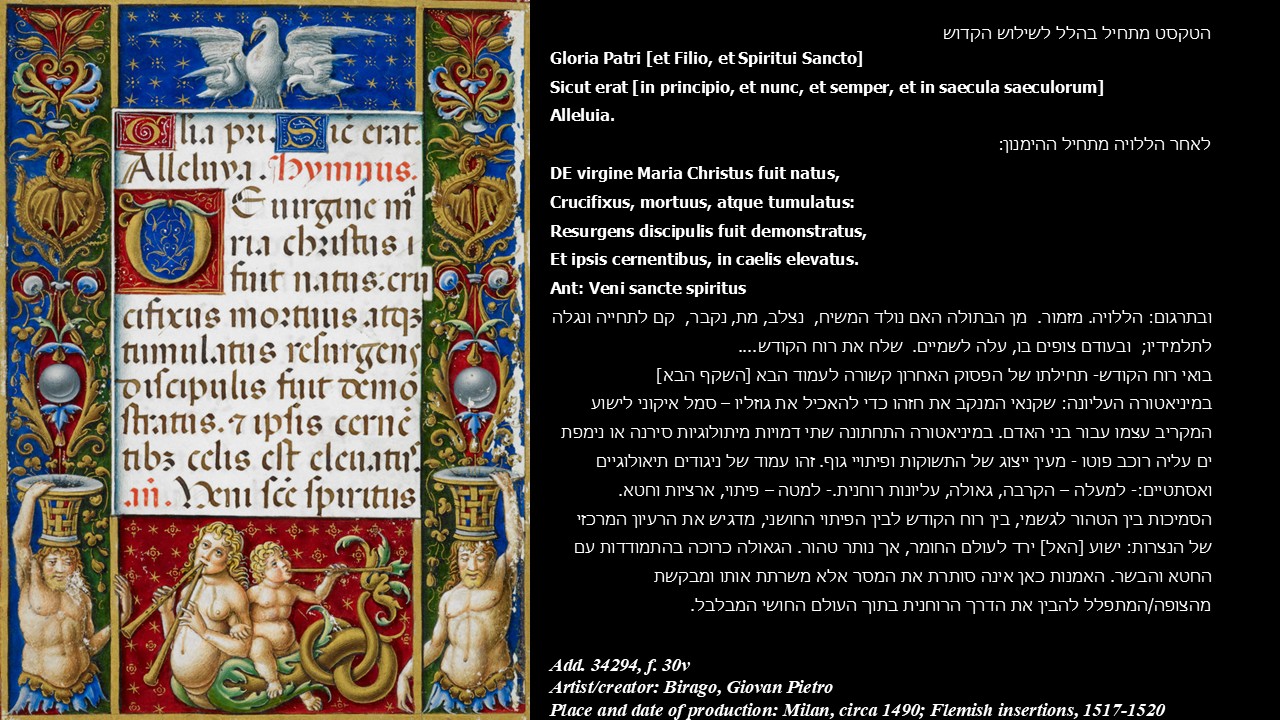 Glia pri. Sic erat.
Alleluya. Hymnus.
DE uirgine ma
ria christus i
fuit natus: cru
cifixus mortuus atqz
tumulatus resurgens
discipulis fuit demo
stratus. ⁊ ipsis cerne
tibz celis est eleuatus.
an. Veni sce spiritus
הטקסט מתחיל בהלל לשילוש הקדוש
Gloria Patri [et Filio, et Spiritui Sancto]
Sicut erat [in principio, et nunc, et semper, et in saecula saeculorum]
Alleluia.
לאחר הללויה מתחיל ההימנון:
DE virgine Maria Christus fuit natus,
Crucifixus, mortuus, atque tumulatus:
Resurgens discipulis fuit demonstratus,
Et ipsis cernentibus, in caelis elevatus.
Ant: Veni sancte spiritus
ובתרגום: הללויה. מזמור. מן הבתולה האם נולד המשיח, נצלב, מת, נקבר, קם לתחייה ונגלה
לתלמידיו; ובעודם צופים בו, עלה לשמיים. שלח את רוח הקודש....
בואי רוח הקודש- תחילתו של הפסוק האחרון קשורה לעמוד הבא [השקף הבא]
במיניאטורה העליונה: שקנאי המנקב את חזהו כדי להאכיל את גוזליו – סמל איקוני לישוע
המקריב עצמו עבור בני האדם. במיניאטורה התחתונה שתי דמויות מיתולוגיות סירנה או נימפת
ים עליה רוכב פוטו - מעין ייצוג של התשוקות ופיתויי גוף. זהו עמוד של ניגודים תיאולוגיים
ואסתטיים:- למעלה – הקרבה, גאולה, עליונות רוחנית.- למטה – פיתוי, ארציות וחטא.
הסמיכות בין הטהור לגשמי, בין רוח הקודש לבין הפיתוי החושני, מדגיש את הרעיון המרכזי
של הנצרות: ישוע [האל] ירד לעולם החומר, אך נותר טהור. הגאולה כרוכה בהתמודדות עם
החטא והבשר. האמנות כאן אינה סותרת את המסר אלא משרתת אותו ומבקשת
מהצופה/המתפלל להבין את הדרך הרוחנית בתוך העולם החושי המבלבל.
Add. 34294, f. 30v
Artist/creator: Birago, Giovan Pietro
Place and date of production: Milan, circa 1490; Flemish insertions, 1517-1520